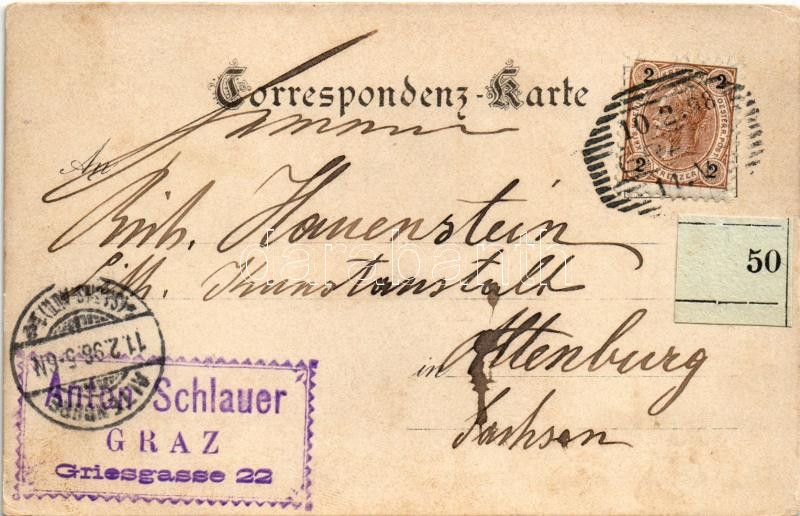 Correspondenz-Karte
An
Rich. Hauenstein
Lith. Kunstanstalt
in Altenburg
Sachsen
2 2
2 2
KREUZER
10.2.98
50
darabanth
11.2.98.5-6N
Anton Schlauer
GRAZ
Griesgasse 22